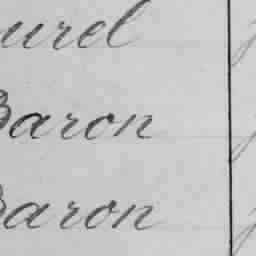 urel
Baron
Baron